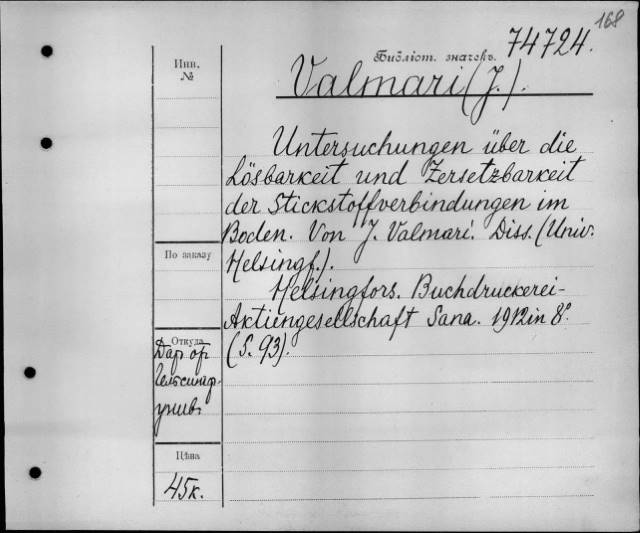 168
Библіот. значекъ. 74724.
Инв.
№
Valmari (J.).
Untersuchungen über die
Lösbarkeit und Zersetzbarkeit
der Stickstoffverbindungen im
Boden. Von J. Valmari. Diss. (Univ.
Helsingf.).
Helsingfors. Buchdruckerei-
Aktiengesellschaft Sana. 1912 in 8º.
(S. 93).
По заказу
Откуда
Дар
Гельсингф.
унив.
Цѣна
45к.